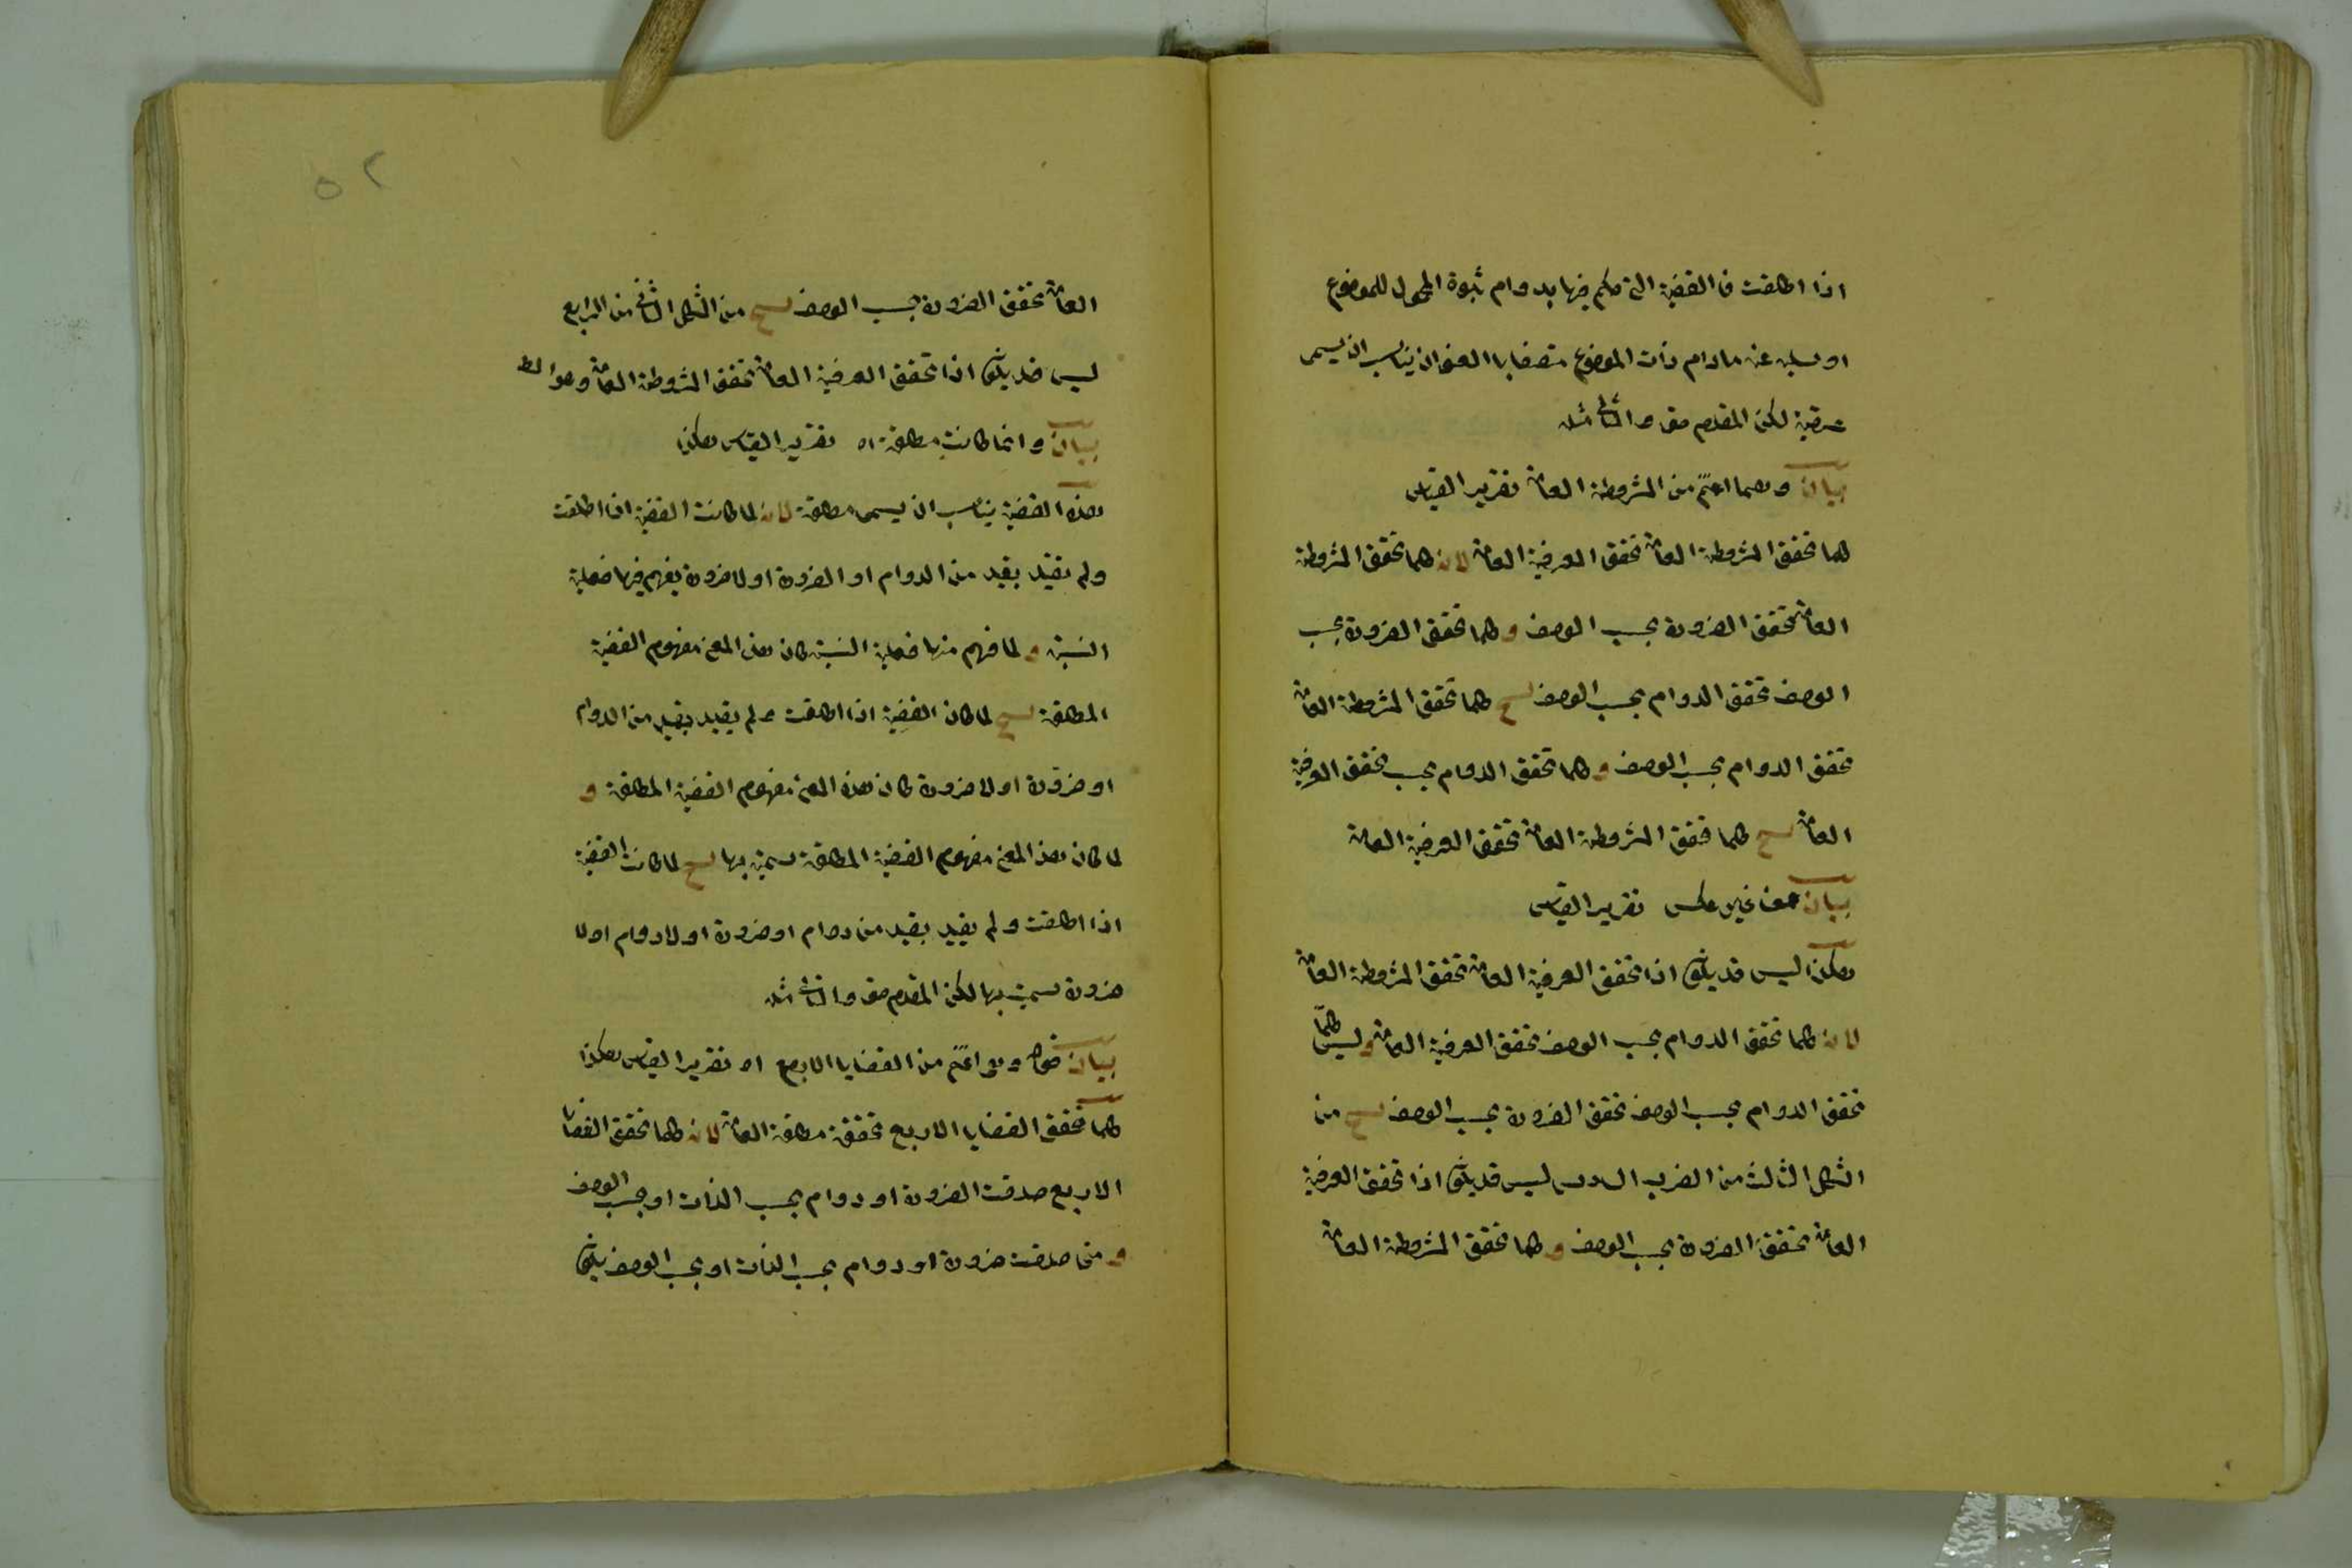 اذا اطلقت فالقضية التي حكم فيها بدوام ثبوة المحمول للموضوع
او سلبه عنه مادام ذات الموضوع متصفا بالعنوان يناسب ان يسمى
عرفية لكن المقدم حق والتالى مثله
بيان وهما اعم من المشروطة العامة تقرير القياس
كلما تحقق المشروطة العامة تحقق العرفية العامة لانه كلما تحقق المشروطة
العامة تحقق الضرورة بحسب الوصف و كلما تحقق الضرورة بحسب
الوصف تحقق الدوام بحسب الوصف ينتج كلما تحقق المشروطة العامة
تحقق الدوام بحسب الوصف و كلما تحقق الدوام بحسب تحقق العرفية
العامة ينتج كلما تحقق المشروطة العامة تحقق العرفية العامة
بيان من غير عكس تقرير القياس
هكذا ليس قد يكون اذا تحقق العرفية العامة تحقق المشروطة العامة
لانه كلما تحقق الدوام بحسب الوصف تحقق العرفية العامة وليس كلما
تحقق الدوام بحسب الوصف تحقق الضرورة بحسب الوصف ينتج من
الشكل الثالث من الضرب السادس ليس قد يكون اذا تحقق العرفية
العامة تحقق الضرورة بحسب الوصف و كلما تحقق المشروطة العامة
٥٢
العامة تحقق الضرورة بحسب الوصف ينتج من الشكل الثانى من الرابع
ليس قد يكون اذا تحقق العرفية العامة تحقق المشروطة العامة وهو المط
بيان وانما كانت مطلقة اه تقرير القياس هكذا
هذه القضية يناسب ان يسمى مطلقة لانه لما كانت القضية اذا اطلقت
ولم تقيد بقيد من الدوام او الضرورة او لا ضرورة يفهم فيها فعلية
النسبة و لما فهم منها فعلية النسبة كان هذا المعنى مفهوم القضية
المطلقة ينتج لما كان القضية اذا اطلقت ولم يقيد بقيد من الدوام
او ضرورة او لا ضرورة كان هذه المعنى مفهوم القضية المطلقة و
لما كان هذا المعنى مفهوم القضية المطلقة سميت بها ينتج لما كانت القضية
اذا اطلقت ولم يقيد بقيد من دوام او ضرورة او لا دوام او لا
ضرورة سميت بها لكن المقدم حق والتالى مثله
بيان قوله وهى اعم من القضايا الاربع اه تقرير القياس هكذا
كلما تحقق القضايا الاربع تحققة مطلقة العامة لانه كلما تحقق القضايا
الاربع صدقت الضرورة او دوام بحسب الذات او بحسب الوصف
و متى صدقت ضرورة او دوام بحسب الذات او بحسب الوصف يكون